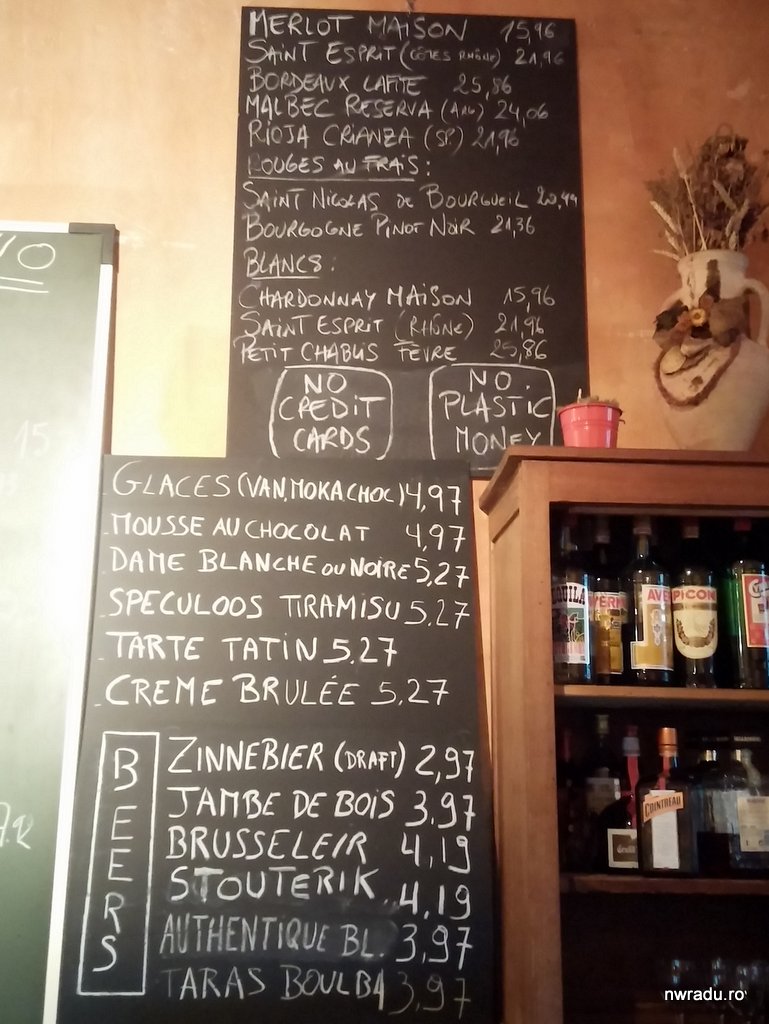 MERLOT MAISON 15,96
SAINT ESPRIT (CÔTES RHÔNE) 21,96
BORDEAUX LAFITE 25,86
MALBEC RESERVA (ARG) 24,06
RIOJA CRIANZA (SP.) 21,96
ROUGES AU FRAIS :
SAINT NICOLAS DE BOURGUEIL 20,49
BOURGOGNE PINOT NOIR 21,36
BLANCS :
CHARDONNAY MAISON 15,96
SAINT ESPRIT (RHÔNE) 21,96
PETIT CHABLIS FÈVRE 25,86
NO CREDIT CARDS
NO PLASTIC MONEY
GLACES (VAN, MOKA CHOC) 4,97
MOUSSE AU CHOCOLAT 4,97
DAME BLANCHE OU NOIRE 5,27
SPECULOOS TIRAMISU 5,27
TARTE TATIN 5,27
CREME BRULÉE 5,27
BEERS
ZINNEBIER (DRAFT) 2,97
JAMBE DE BOIS 3,97
BRUSSELEIR 4,19
STOUTERIK 4,19
AUTHENTIQUE BL. 3,97
TARAS BOULBA 3,97
PICON
COINTREAU
nwradu.ro